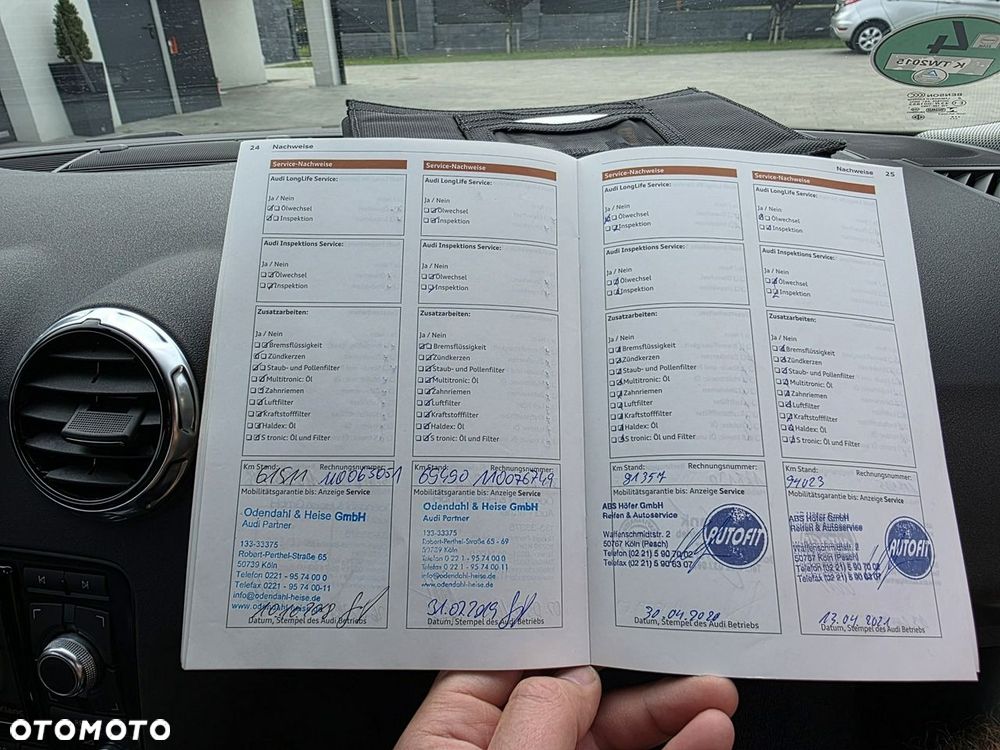 4
K TW2015
BENSON
24 Nachweise
Service-Nachweise
Audi LongLife Service:
Ja / Nein
Ölwechsel
Inspektion
Audi Inspektions Service:
Ja / Nein
Ölwechsel
Inspektion
Zusatzarbeiten:
Ja / Nein
Bremsflüssigkeit
Zündkerzen
Staub- und Pollenfilter
Multitronic: Öl
Zahnriemen
Luftfilter
Kraftstofffilter
Haldex: Öl
S tronic: Öl und Filter
Km Stand: Rechnungsnummer:
61511 110065051
Mobilitätsgarantie bis: Anzeige Service
Odendahl & Heise GmbH
Audi Partner
133-33375
Robert-Perthel-Straße 65
50739 Köln
Telefon 0221 - 95 74 00 0
Telefax 0221 - 95 74 00-11
info@odendahl-heise.de
www.odendahl-heise.de
Datum, Stempel des Audi Betriebs
Service-Nachweise
Audi LongLife Service:
Ja / Nein
Ölwechsel
Inspektion
Audi Inspektions Service:
Ja / Nein
Ölwechsel
Inspektion
Zusatzarbeiten:
Ja / Nein
Bremsflüssigkeit
Zündkerzen
Staub- und Pollenfilter
Multitronic: Öl
Zahnriemen
Luftfilter
Kraftstofffilter
Haldex: Öl
S tronic: Öl und Filter
Km Stand: Rechnungsnummer:
69490 110076749
Mobilitätsgarantie bis: Anzeige Service
Odendahl & Heise GmbH
Audi Partner
133-33375
Robert-Perthel-Straße 65 - 69
50739 Köln
Telefon 02 21 - 95 74 00-0
Telefax 02 21 - 95 74 00-11
info@odendahl-heise.de
www.odendahl-heise.de
31.02.2019
Datum, Stempel des Audi Betriebs
Nachweise 25
Service-Nachweise
Audi LongLife Service:
Ja / Nein
Ölwechsel
Inspektion
Audi Inspektions Service:
Ja / Nein
Ölwechsel
Inspektion
Zusatzarbeiten:
Ja / Nein
Bremsflüssigkeit
Zündkerzen
Staub- und Pollenfilter
Multitronic: Öl
Zahnriemen
Luftfilter
Kraftstofffilter
Haldex: Öl
S tronic: Öl und Filter
Km Stand: Rechnungsnummer:
81357
Mobilitätsgarantie bis: Anzeige Service
ABS Höfer GmbH
Reifen & Autoservice
Waffenschmidtstr. 2
50767 Köln (Pesch)
Telefon (02 21) 5 90 70 02
Telefax (02 21) 5 90 63 07
AUTOFIT
30.04.2020
Datum, Stempel des Audi Betriebs
Service-Nachweise
Audi LongLife Service:
Ja / Nein
Ölwechsel
Inspektion
Audi Inspektions Service:
Ja / Nein
Ölwechsel
Inspektion
Zusatzarbeiten:
Ja / Nein
Bremsflüssigkeit
Zündkerzen
Staub- und Pollenfilter
Multitronic: Öl
Zahnriemen
Luftfilter
Kraftstofffilter
Haldex: Öl
S tronic: Öl und Filter
Km Stand: Rechnungsnummer:
94023
Mobilitätsgarantie bis: Anzeige Service
ABS Höfer GmbH
Reifen & Autoservice
Waffenschmidtstr. 2
50767 Köln (Pesch)
Telefon (02 21) 5 90 70 02
Telefax (02 21) 5 90 63 07
AUTOFIT
13.04.2021
Datum, Stempel des Audi Betriebs
OTOMOTO